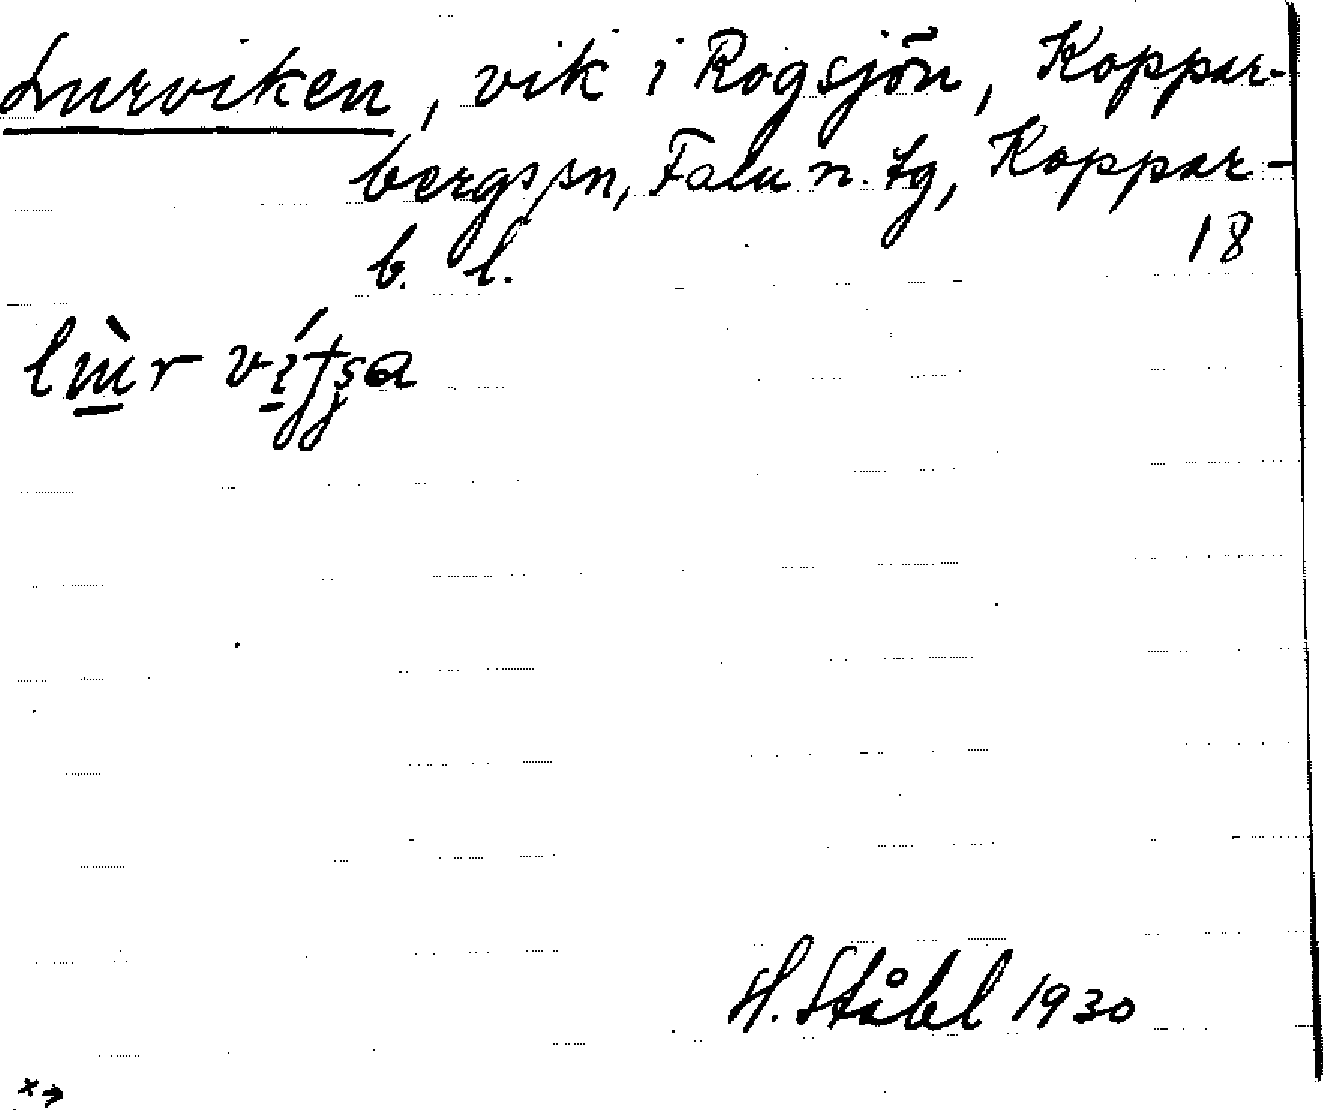 Lurviken, vik i Rogsjön, Koppar-
bergs sn, Falu n. tg, Koppar-
b. l. 18
H. Ståhl 1930